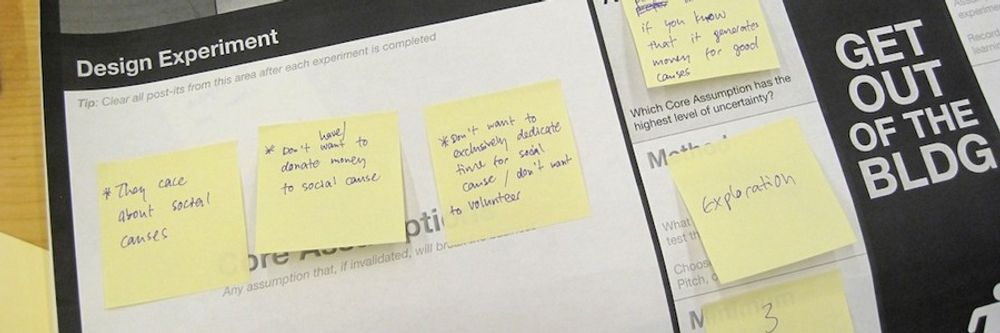 Design Experiment
Tip: Clear all post-its from this area after each experiment is completed
* They care
about social
causes
have/
* Don't want to
donate money
to social cause
* Don't want to
exclusively dedicate
time for social
cause / don't want
to volunteer
Core Assumption
Any assumption that, if invalidated, will
if you know
that it generates
money for good
causes
Which Core Assumption has the
highest level of uncertainty?
Method
Exploration
What
test th
Choos
Pitch,
3
GET
OUT
OF THE
BLDG
experim
Record
learne